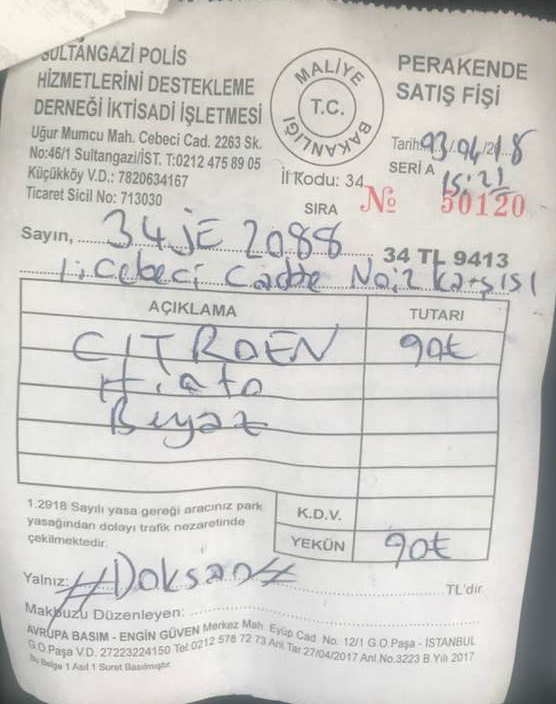 SULTANGAZİ POLİS
HİZMETLERİNİ DESTEKLEME
DERNEĞİ İKTİSADİ İŞLETMESİ
Uğur Mumcu Mah. Cebeci Cad. 2263 Sk.
No:46/1 Sultangazi/İST. T:0212 475 89 05
Küçükköy V.D.: 7820634167
Ticaret Sicil No: 713030
MALİYE
T.C.
BAKANLIĞI
İl Kodu: 34
PERAKENDE
SATIŞ FİŞİ
Tarih:
SERİ A
15:21
SIRA № 50120
Sayın, 34 JE 2088
34 TL 9413
Cebeci Cadde No:2 Karşısı
AÇIKLAMA TUTARI
CITROEN 90₺
Beyaz
1.2918 Sayılı yasa gereği aracınız park
yasağından dolayı trafik nezaretinde
çekilmektedir.
K.D.V.
YEKÜN 90₺
Yalnız: #Doksan# TL'dir.
Makbuzu Düzenleyen:
AVRUPA BASIM - ENGİN GÜVEN Merkez Mah. Eyüp Cad. No. 12/1 G.O.Paşa - İSTANBUL
G.O.Paşa V.D. 27223224150 Tel:0212 578 72 73 Anl. Tar 27/04/2017 Anl.No.3223 B.Yılı 2017
Bu Belge 1 Asıl 1 Suret Basılmıştır.